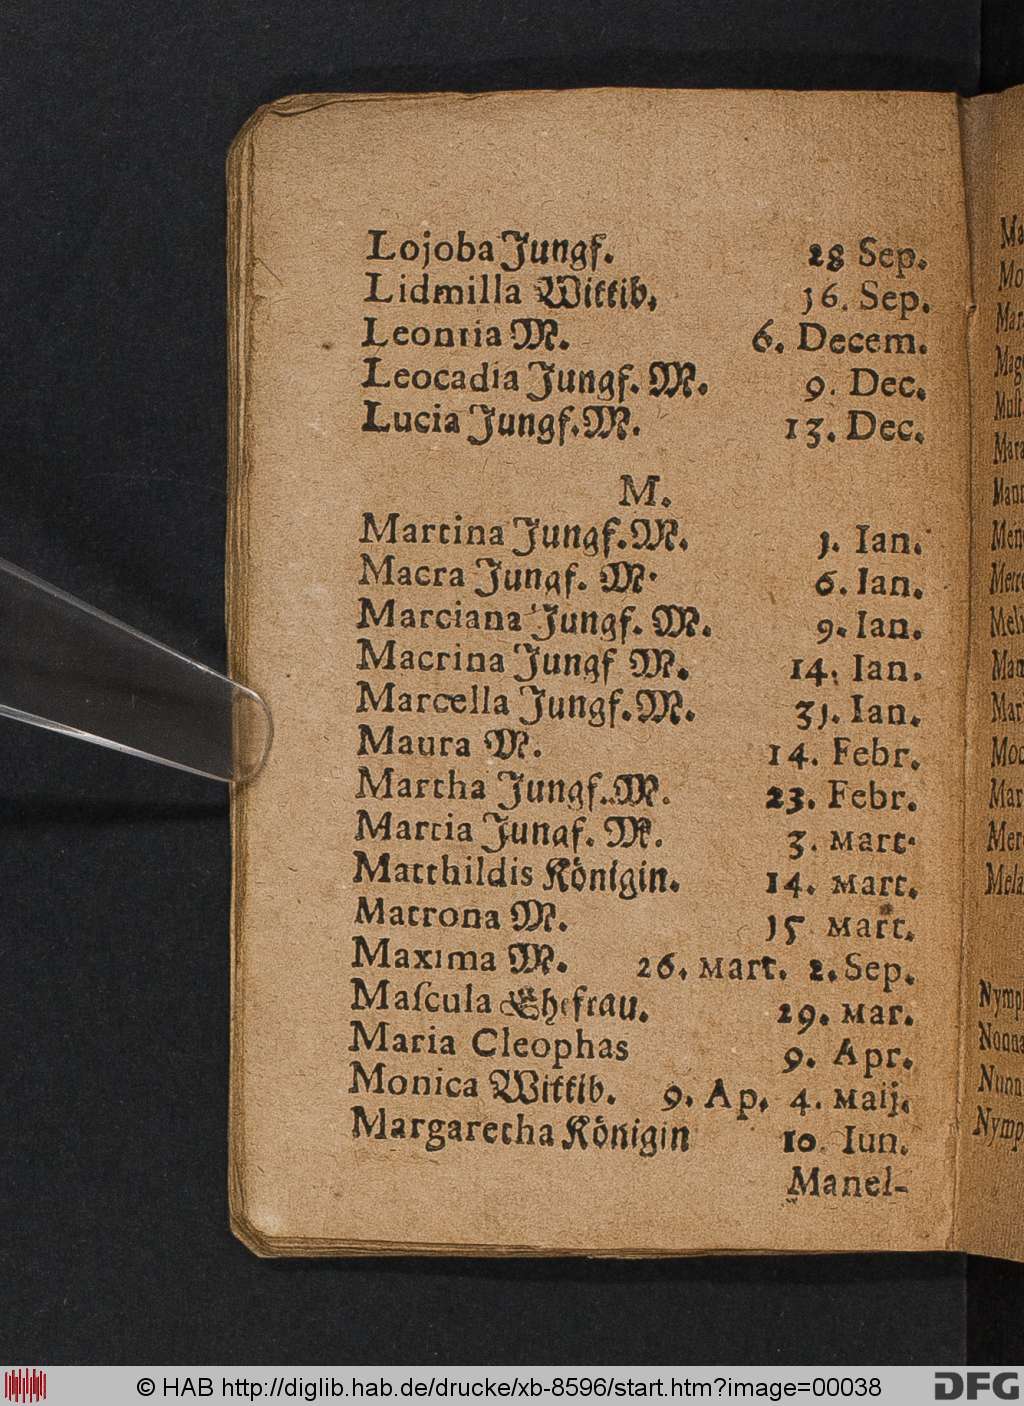 Lojoba Jungf. 28 Sep.
Lidmilla Wittib. 16. Sep.
Leontia M. 6. Decem.
Leocadia Jungf. M. 9. Dec.
Lucia Jungf. M. 13. Dec.
M.
Martina Jungf. M. 1. Ian.
Macra Jungf. M. 6. Ian.
Marciana Jungf. M. 9. Ian.
Macrina Jungf M. 14. Ian.
Marcella Jungf. M. 31. Ian.
Maura M. 14. Febr.
Martha Jungf. M. 23. Febr.
Martia Jungf. M. 3. Mart.
Matthildis Königin. 14. Mart.
Matrona M. 15 Mart.
Maxima M. 26. Mart. 2. Sep.
Maſcula Ehefrau. 29. Mar.
Maria Cleophas 9. Apr.
Monica Wittib. 9. Ap. 4. Maij.
Margaretha Königin 10. Iun.
Manel-
Ma
Mo
Mar
Mage
Muſt
Mara
Mann
Men
Merc
Man
Mar
Moc
Mar
Mer
Mela
Nymp
Nonna
Nunn
Nymp
© HAB http://diglib.hab.de/drucke/xb-8596/start.htm?image=00038
DFG